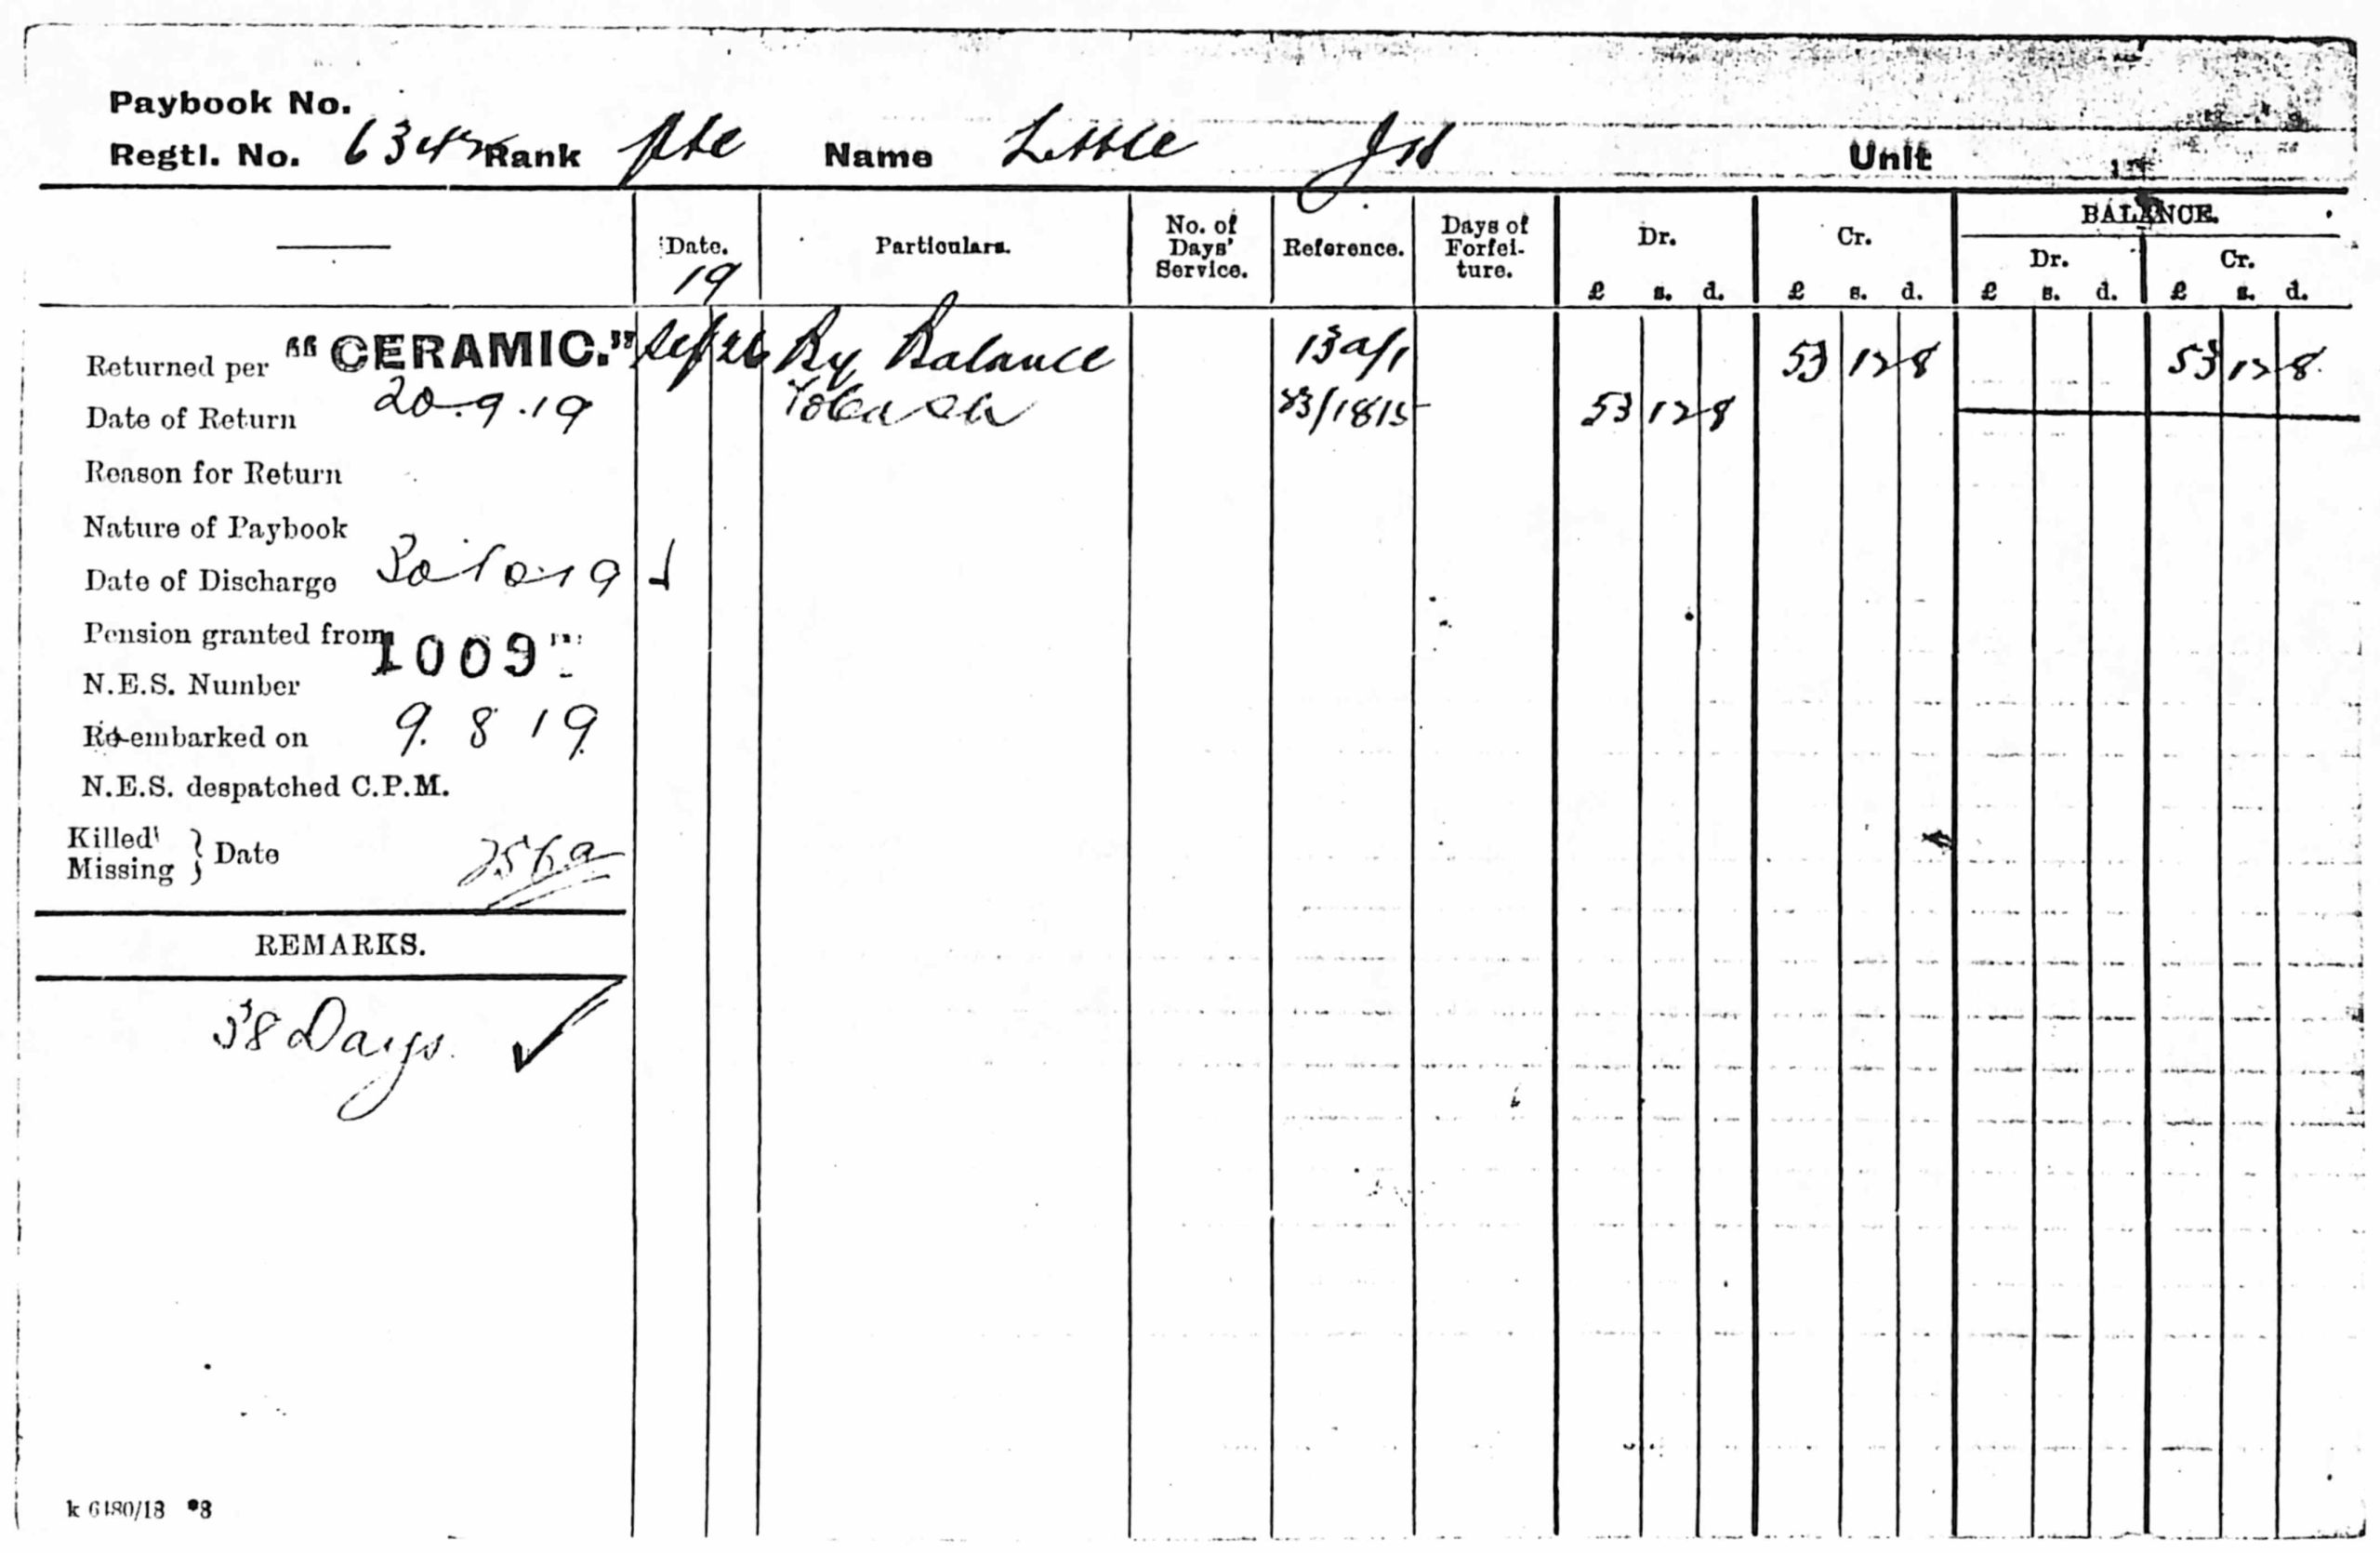 Paybook No.
Regtl. No. 6342 Rank Pte Name Little Unit
Date. Particulars. No. of Days' Service. Reference. Days of Forfei-ture. Dr. Cr. BALANCE.
19 Dr. Cr.
£ s. d. £ s. d. £ s. d. £ s. d.
Returned per "CERAMIC." Sep 26 By Balance 13a/1 53 12 8 53 12 8
Date of Return 20.9.19 To Cash 53 12 8
Reason for Return
Nature of Paybook
Date of Discharge 30 10 19
Pension granted from
N.E.S. Number 1009
Re-embarked on 9. 8 19
N.E.S. despatched C.P.M.
Killed
Missing } Date
REMARKS.
38 Days. ✓
k 6480/18 *8